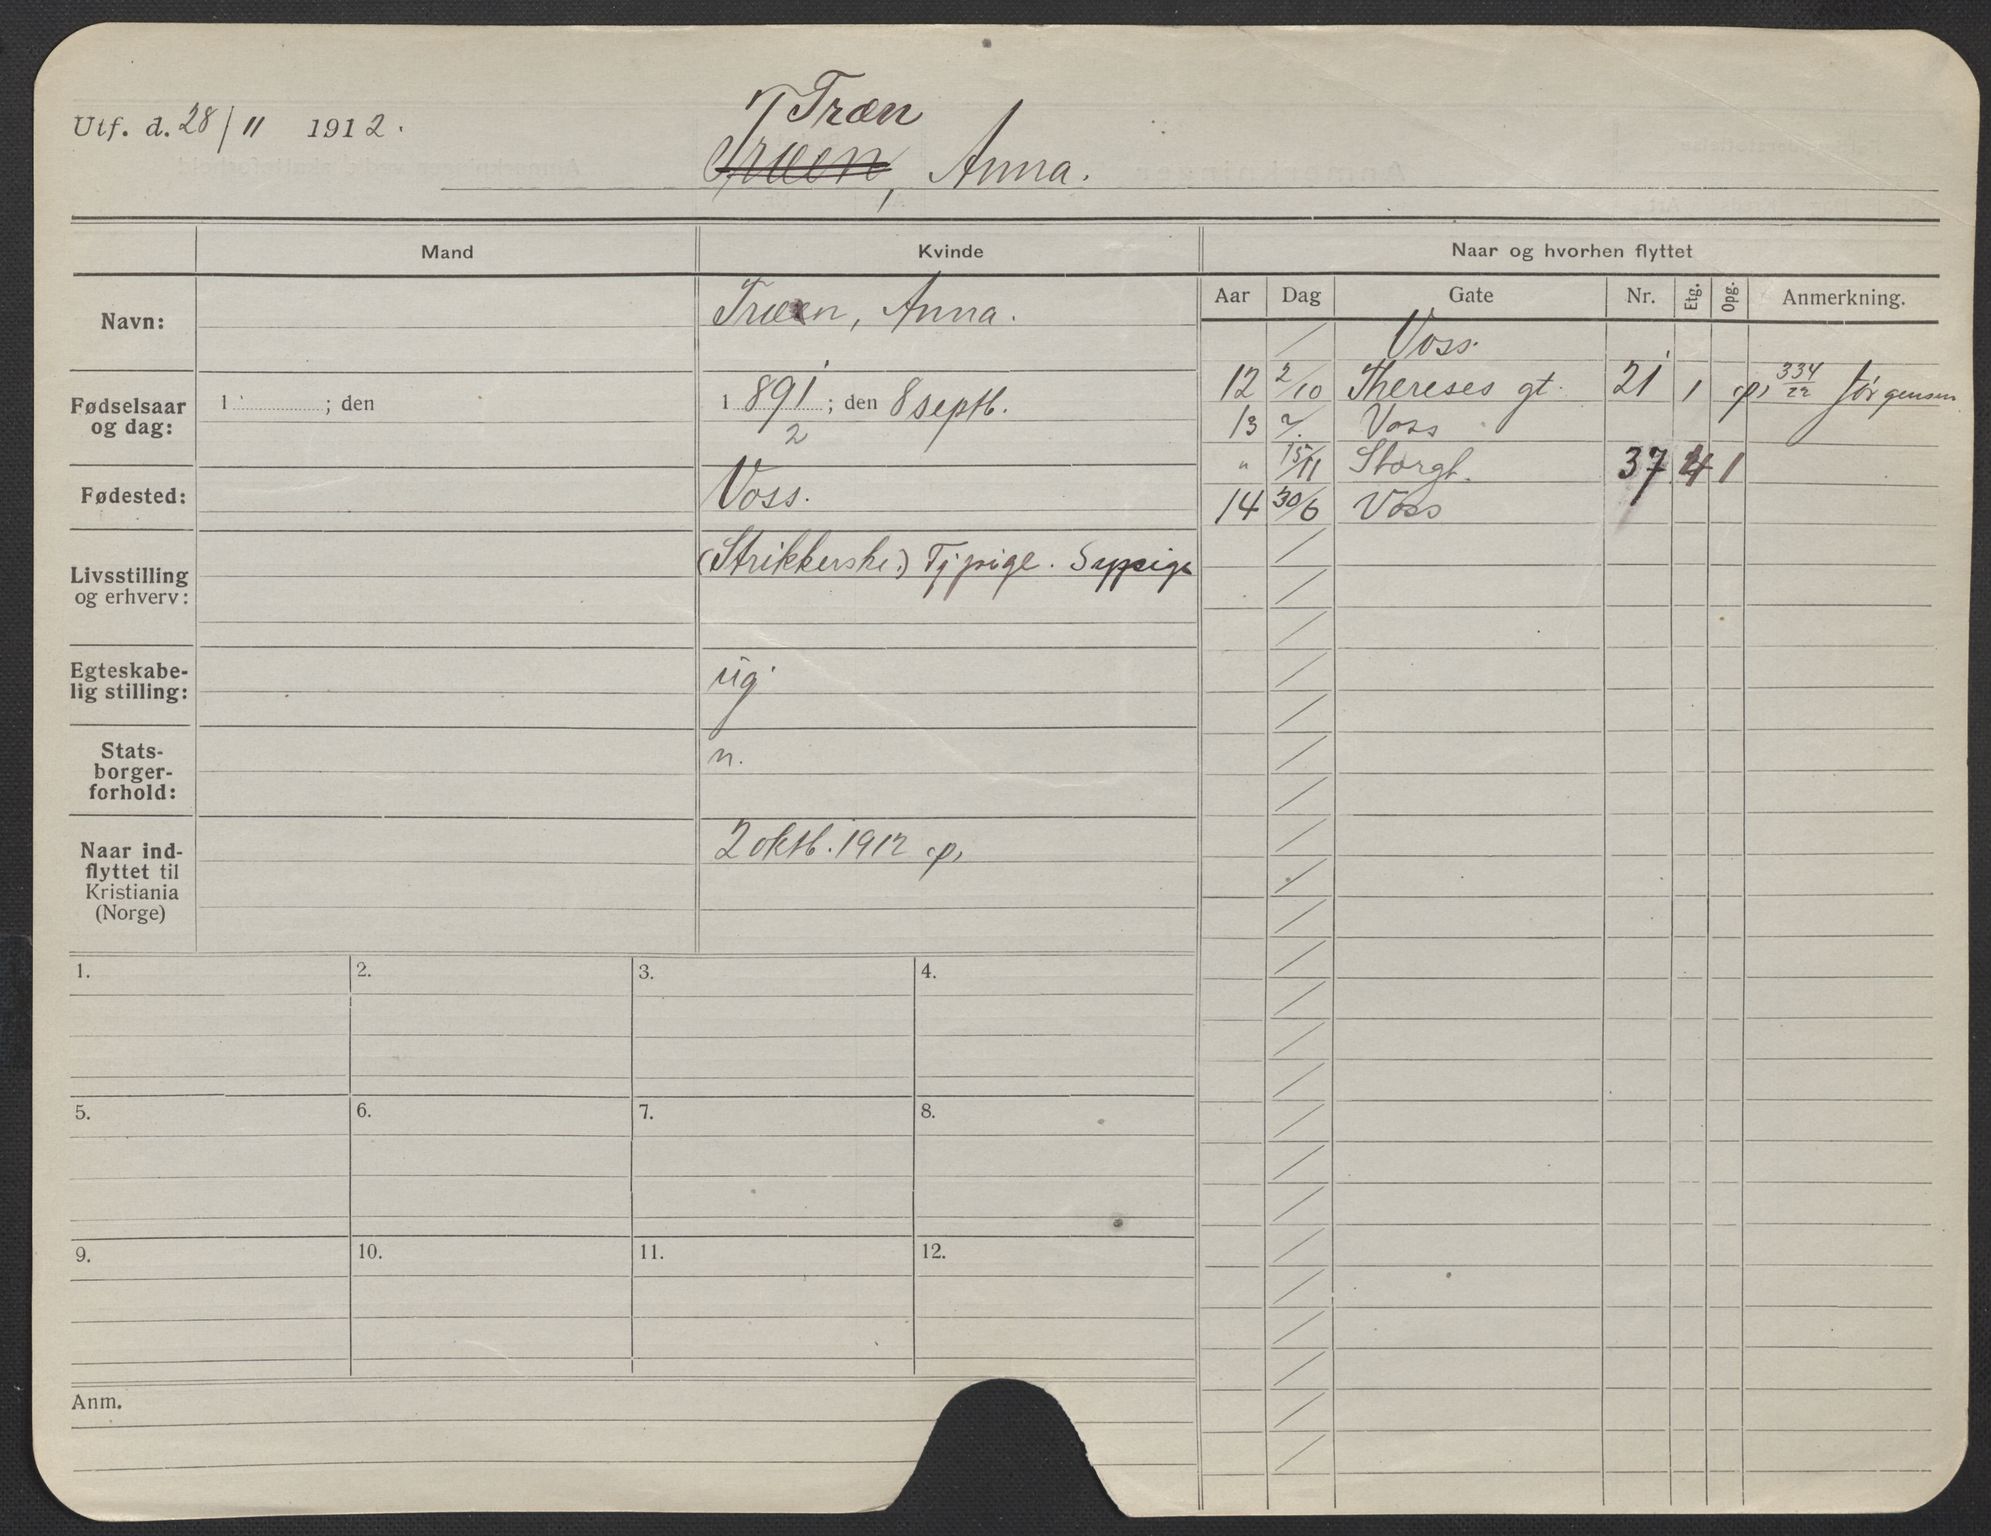 Utf. d. 28/11 1912.
Træn
Træen, Anna.
Mand
Kvinde
Naar og hvorhen flyttet
Aar Dag Gate Nr. Etg. Opg. Anmerkning.
Navn:
Træen, Anna.
Fødselsaar
og dag:
1 ; den
1891; den 8 septb.
2
Fødested:
Voss.
Livsstilling
og erhverv:
(Strikkerske.) Tjpige. Sypige
Egteskabe-
lig stilling:
ug.
Stats-
borger-
forhold:
n.
Naar ind-
flyttet til
Kristiania
(Norge)
2 oktb. 1912 p,
Voss.
12 2/10 Thereses gt. 21 1 p, 334/22 Jørgensen
13 ?. Voss
" 15/11 Storgt. 37 4 1
14 30/6 Voss
1. 2. 3. 4.
5. 6. 7. 8.
9. 10. 11. 12.
Anm.